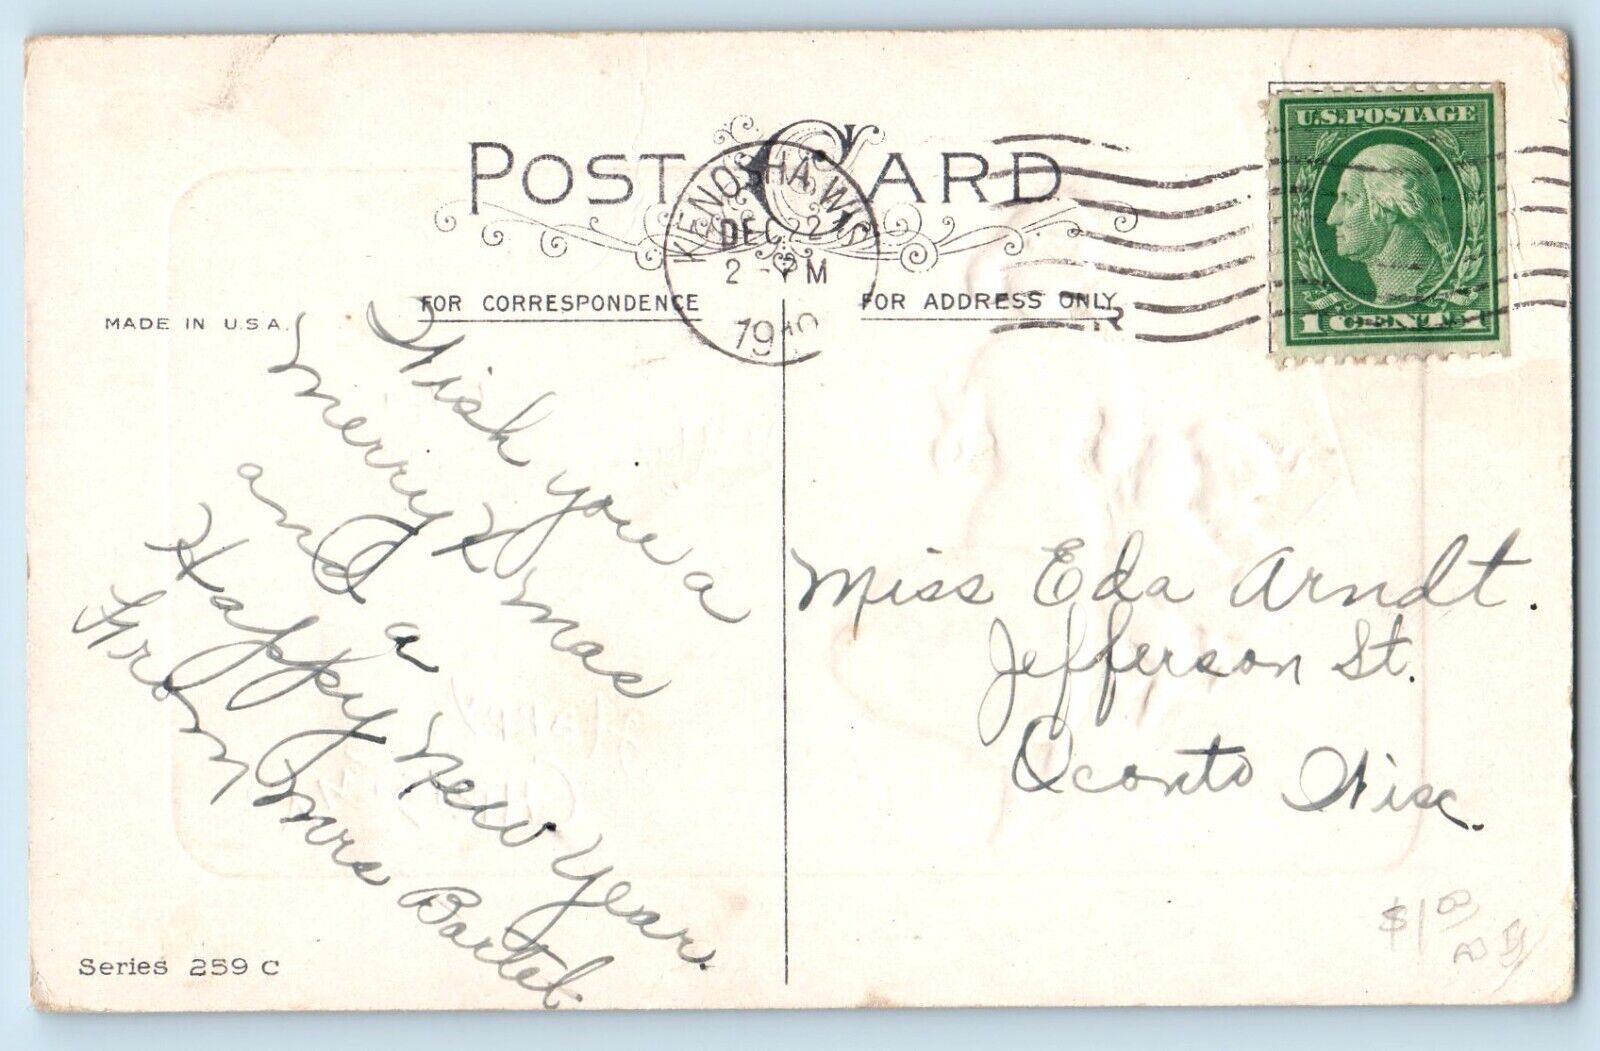 POST CARD
KENOSHA WIS
DEC 22
2 - PM
U.S. POSTAGE
1 CENT 1
FOR CORRESPONDENCE
FOR ADDRESS ONLY
MADE IN U.S.A.
Wish you a
merry Xmas
and a
Happy New Year.
From Mrs Bartel.
Miss Eda Arndt.
Jefferson St.
Oconto Wisc.
Series 259 C
$1.00